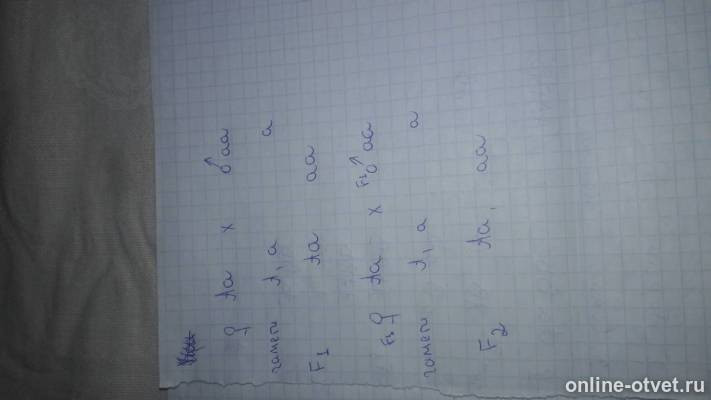 ♀ Aa x ♂ aa
гамети A, a a
F1 Aa aa
F1 ♀ Aa x F1 ♂ aa
гамети A, a a
F2 Aa, aa
online-otvet.ru